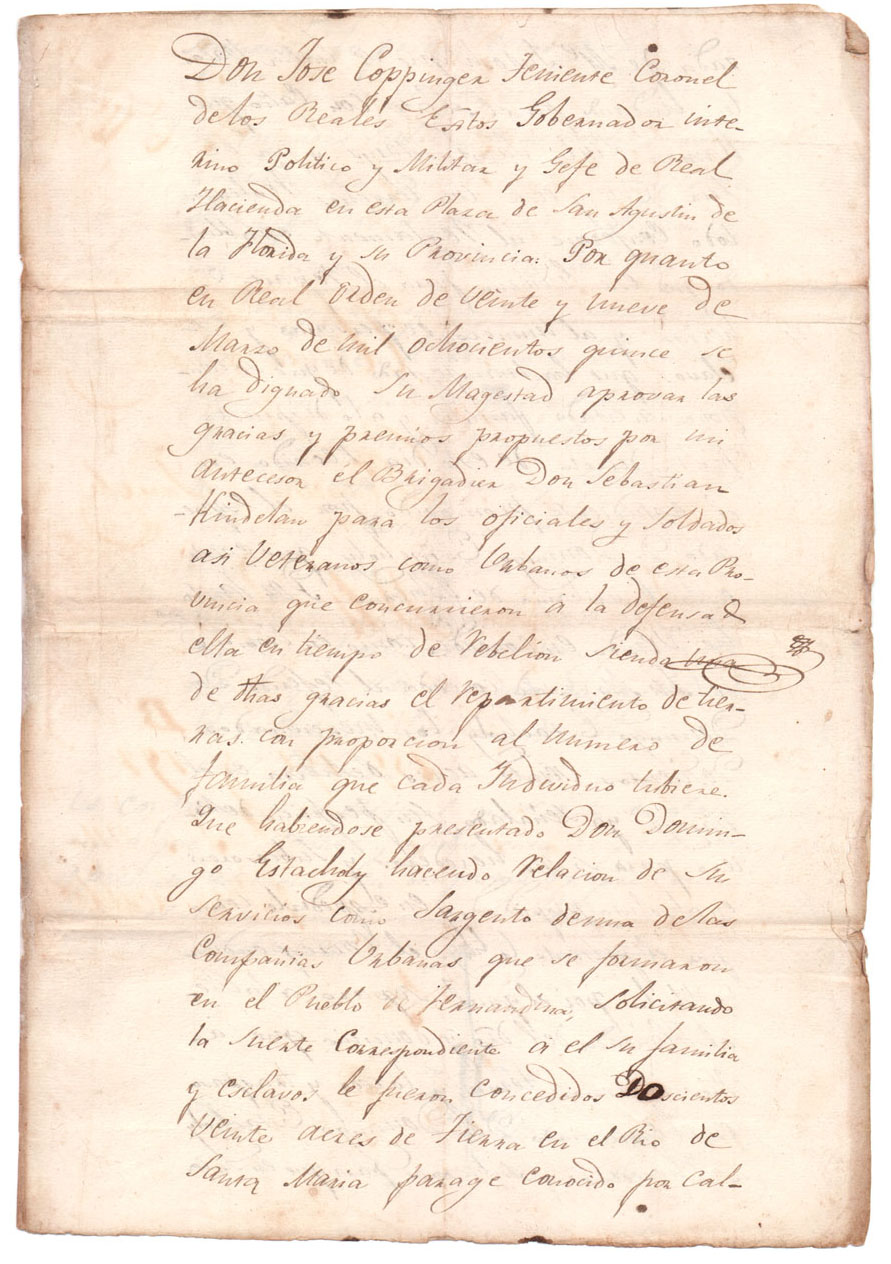 Don Jose Coppinger Teniente Coronel
delos Reales Exitos Gobernador inte-
rino Politico y Militar y Gefe de Real
Hacienda en esta Plaza de San Agustin de
la Florida y su Provincia: Por quanto
en Real Orden de veinte y nueve de
Marzo de mil ochocientos quince se
ha dignado Su Magestad aprovar las
gracias y premios propuestos por mi
Antecesor el Brigadier Don Sebastian
Kindelan para los oficiales y soldados
asi Veteranos como Urbanos de esta Pro-
vincia que concurrieron á la defensa d
ella en tiempo de rebelion siendo una
de thas gracias el repartimiento de tier-
ras con proporcion al numero de
familia que cada Individuo tubiere.
Que habiendose presentado Don Domin-
go Estacholy haciendo relacion de su
servicios como Sargento de una delas
Compañias Urbanas que se formaron
en el Pueblo de Fernandina, solicitando
la suerte Correspondiente á el su familia
y esclavos le fueron concedidos Doscientos
veinte acres de Tierra en el Rio de
Santa Maria parage conocido por Cal-